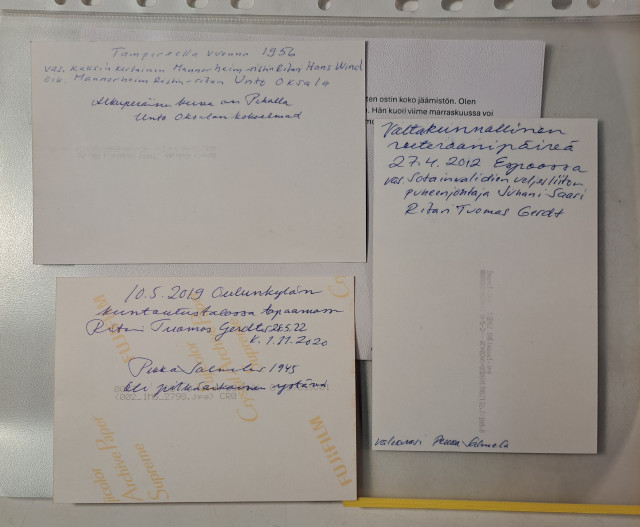 Tampereella vuonna 1956
vas. kaksinkertainen Mannerheim-ristin Ritari Hans Wind
oik. Mannerheim Ristin-ritari Unto Oksala
Alkuperäinen kuva on Pekalla
Unto Oksalan kokoelmat
ten ostin koko jäämistön. Olen
. Hän kuoli viime marraskuussa voi
Valtakunnallinen
veteraanipäivä
27.4. 2012 Espoossa
vas. Sotainvalidien veljesliiton
puheenjohtaja Juhani Saari
Ritari Tuomas Gerdt
valokuvasi Pekka Salmela
10.5. 2019 Oulunkylän
kuntoutustalossa tapaamassa
Ritari Tuomas Gerdt s 28.5.22
k. 1.11.2020
Pekka Salmela s 1945
oli pitkäaikainen ystävä
(002_IMG_2798.jpg) CR0
FUJIFILM
FUJIFILM
Archive Paper
Supreme